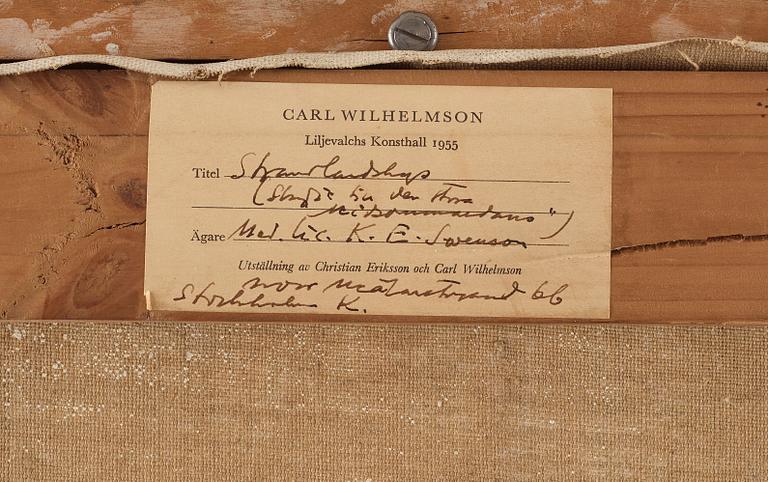 CARL WILHELMSON
Liljevalchs Konsthall 1955
Titel Strandlandskap
(Skiss till den stora
Midsommardans")
Ägare Med. lic. K. E. Swenson
Utställning av Christian Eriksson och Carl Wilhelmson
Norr Mälarstrand 66
Stockholm K.